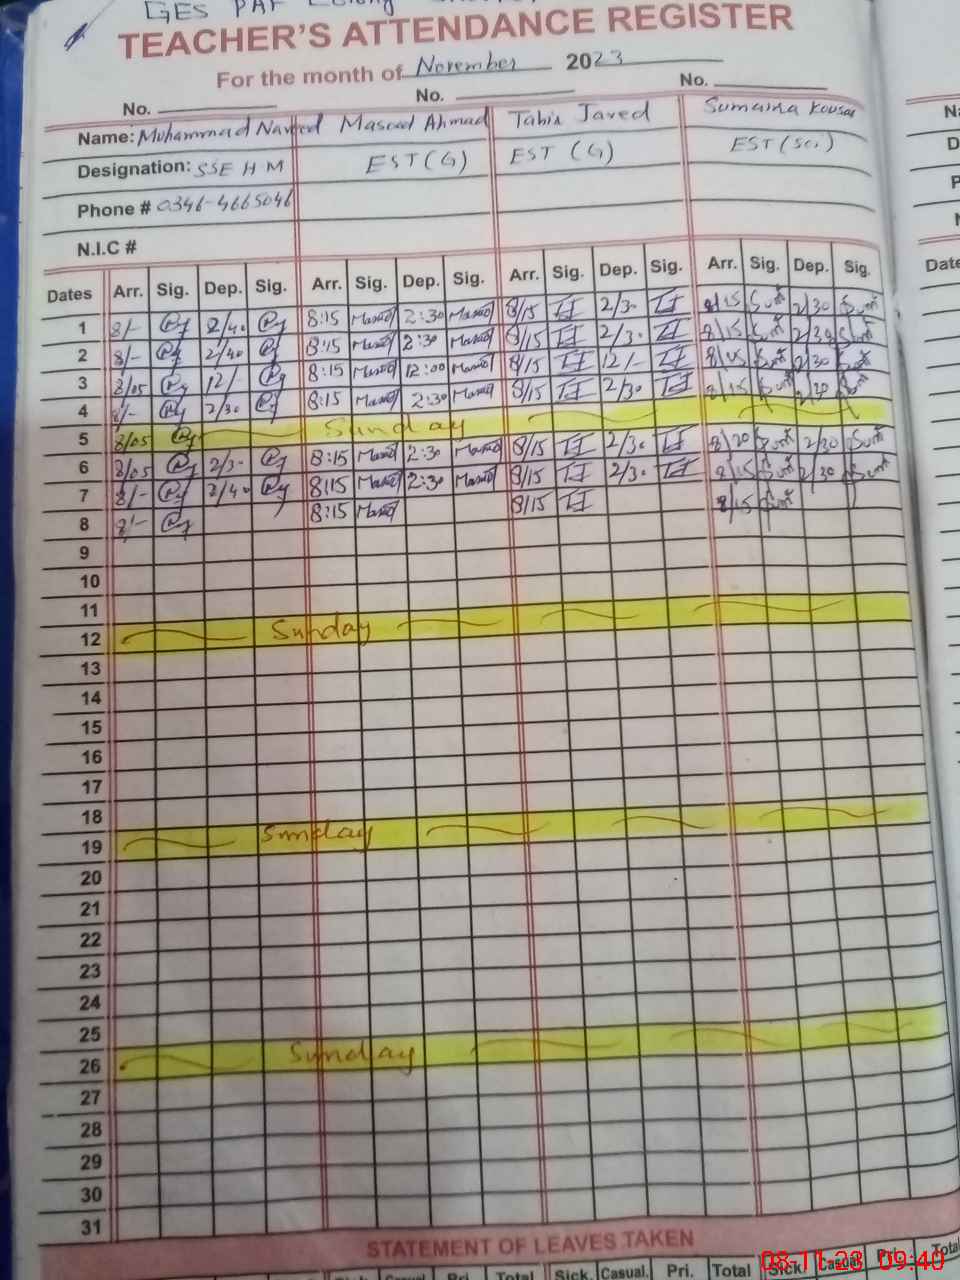 GES PAF
TEACHER'S ATTENDANCE REGISTER
For the month of November 2023
No. No. No.
Name: Muhammad Naveed Masood Ahmad Tahir Javed Sumaira Kousar
Designation: SSE H M EST (G) EST (G) EST (Sci)
Phone # 0346-4665046
N.I.C #
Dates Arr. Sig. Dep. Sig. Arr. Sig. Dep. Sig. Arr. Sig. Dep. Sig. Arr. Sig. Dep. Sig.
1 8/- 2/40 8:15 Masood 2:30 Masood 8/15 TJ 2/30 TJ 8/15 2/30
2 8/- 2/40 8:15 Masood 2:30 Masood 8/15 TJ 2/30 TJ 8/15 2/30
3 8/05 12/ 8:15 Masood 12:00 Masood 8/15 TJ 12/- TJ 8/15 2/30
4 8/- 2/30 8:15 Masood 2:30 Masood 8/15 TJ 2/30 TJ 8/15 2/30
5 8/05 Sunday
6 8/05 2/30 8:15 Masood 2:30 Masood 8/15 TJ 2/30 TJ 8/20 2/30
7 8/- 2/40 8:15 Masood 2:30 Masood 8/15 TJ 2/30 TJ 8/15 2/30
8 8/- 8:15 Masood 8/15 TJ 8/15
9
10
11
12 Sunday
13
14
15
16
17
18
19 Sunday
20
21
22
23
24
25
26 Sunday
27
28
29
30
31
STATEMENT OF LEAVES TAKEN
Total Sick. Casual. Pri. Total Sick. Casual Pri. Total
08-11-23 09:40